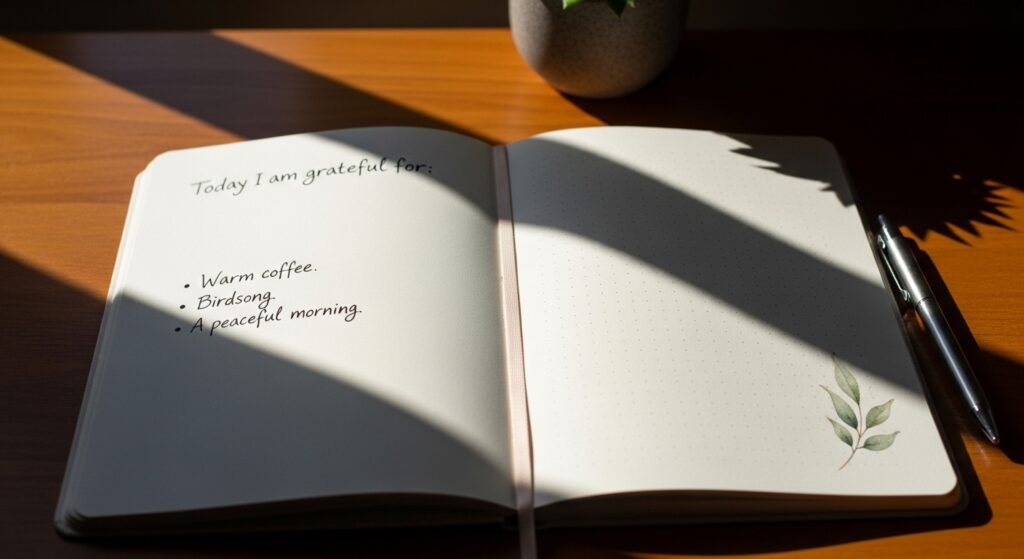 Today I am grateful for:
• Warm coffee.
• Birdsong.
• A peaceful morning.